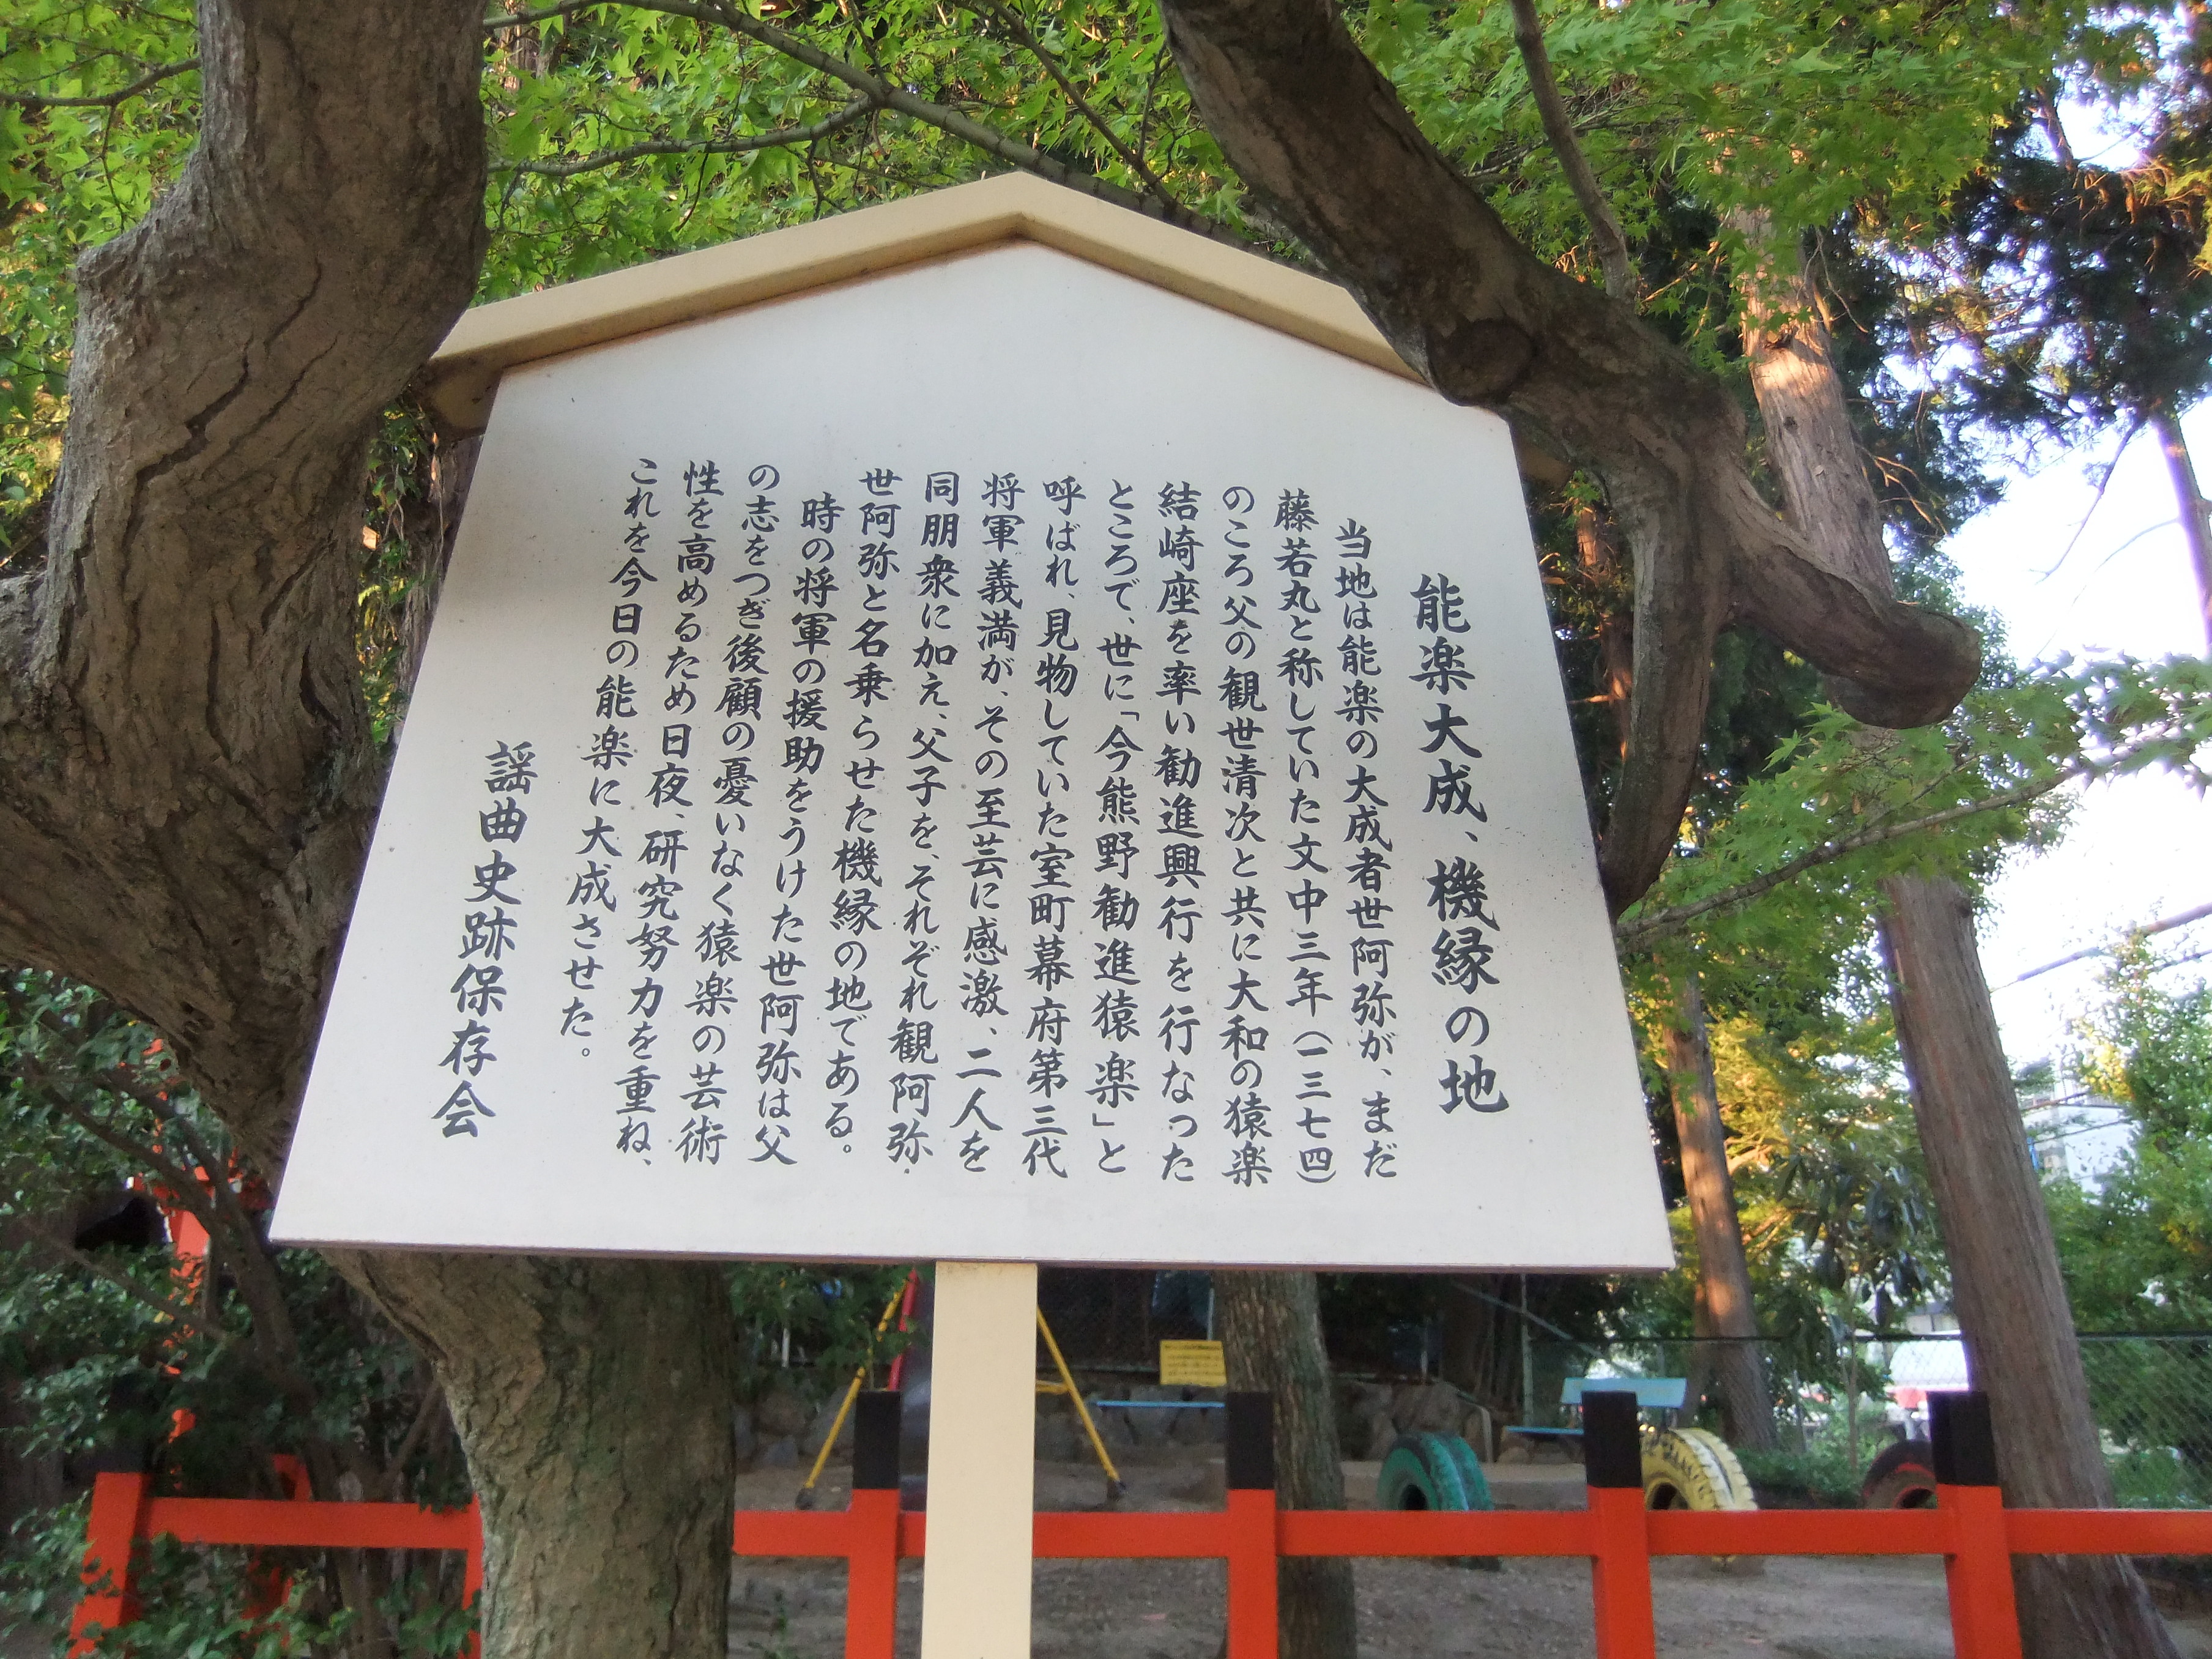 能楽大成、機縁の地
当地は能楽の大成者世阿弥が、まだ
藤若丸と称していた文中三年（一三七四）
のころ父の観世清次と共に大和の猿楽
結崎座を率い勧進興行を行なった
ところで、世に「今熊野勧進猿楽」と
呼ばれ、見物していた室町幕府第三代
将軍義満が、その至芸に感激、二人を
同朋衆に加え、父子を、それぞれ観阿弥・
世阿弥と名乗らせた機縁の地である。
時の将軍の援助をうけた世阿弥は父
の志をつぎ後顧の憂いなく猿楽の芸術
性を高めるため日夜、研究努力を重ね、
これを今日の能楽に大成させた。
謡曲史跡保存会